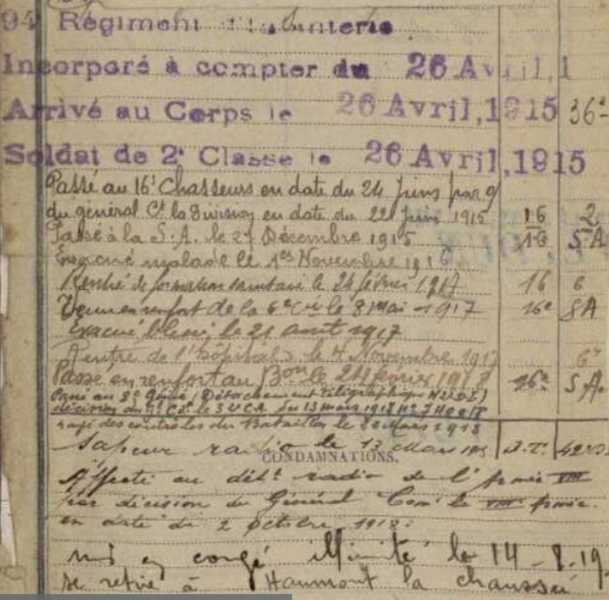 94 Régiment d'Infanterie
Incorporé à compter du 26 Avril, 1
Arrivé au Corps le 26 Avril, 1915 36
Soldat de 2e Classe le 26 Avril, 1915
Passé au 16e Chasseurs en date du 24 Juin par
du général Ct la Division en date du 22 Juin 1915 16 2
Passé à la S.A. le 27 Décembre 1915 16 S A
Evacué malade le 1er Novembre 191
Rentré de formation sanitaire le 24 février 1917 16 6
Venu en renfort de la 6e Cie le 8 Mai 1917 16e S A
Evacué blessé le 21 août 1917
Rentré de l'Hôpital le 4 Novembre 1917 6
Passé en renfort au Bon le 24 février 1918 16e S.A.
Passé au 8e Génie (Détachement télégraphique
décision du du 13 mars 1918
rayé des contrôles du Bataillon le mars 1918
Sapeur radio le 13 Mars 1918
CONDAMNATIONS.
Affecté au dét. radio de l'Armée VIII
par décision du Général Com. la VIII Armée
en date du 2 Octobre 1918.
mis en congé illimité le 14-8-19
se retire à Haumont la chaussée